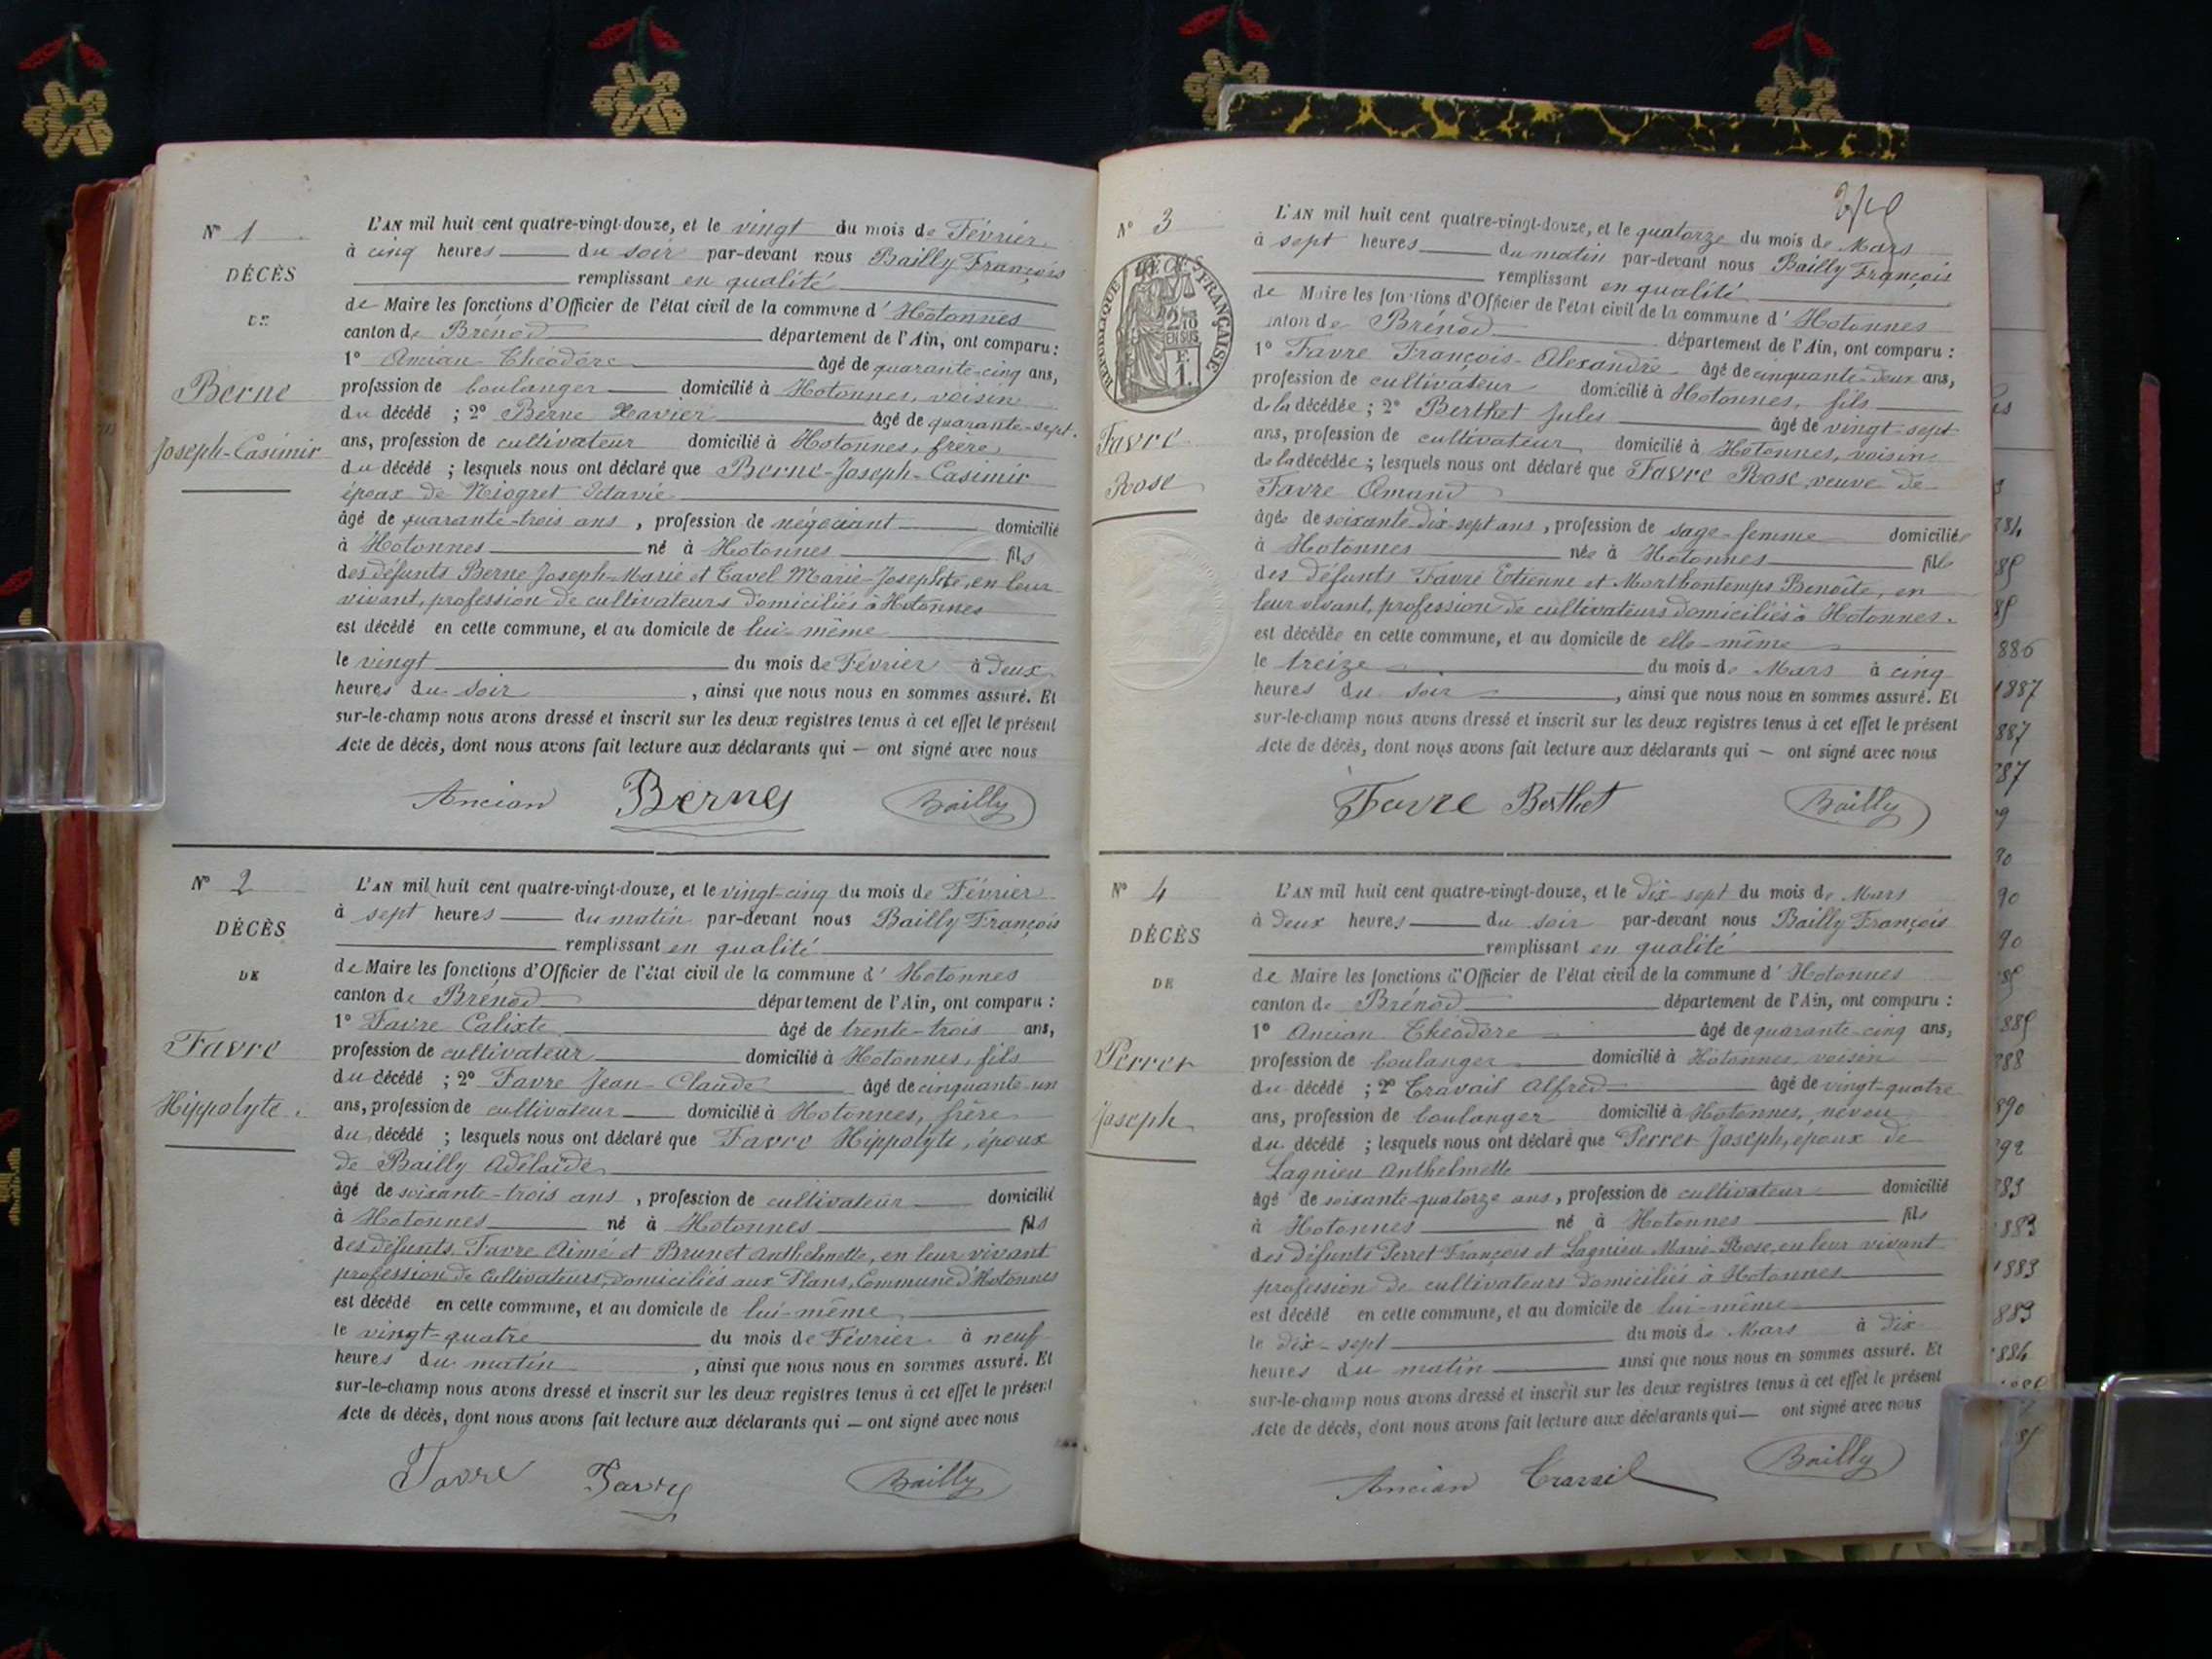 N° 1
DÉCÈS
DE
Berne
Joseph-Casimir
L'AN mil huit cent quatre-vingt-douze, et le vingt du mois de Février
à cinq heures du soir par-devant nous Bailly François
remplissant en qualité
de Maire les fonctions d'Officier de l'état civil de la commune d'Hotonnes
canton de Brénod département de l'Ain, ont comparu :
1° Ancian Théodore âgé de quarante-cinq ans,
profession de boulanger domicilié à Hotonnes, voisin
du décédé ; 2° Berne Xavier âgé de quarante-sept
ans, profession de cultivateur domicilié à Hotonnes, frère
du décédé ; lesquels nous ont déclaré que Berne-Joseph-Casimir
époux de Niogret Octavie
âgé de quarante-trois ans, profession de négociant domicilié
à Hotonnes né à Hotonnes fils
des défunts Berne Joseph-Marie et Tavel Marie-Josephte, en leur
vivant, profession de cultivateurs domiciliés à Hotonnes
est décédé en cette commune, et au domicile de lui-même
le vingt du mois de Février à deux
heures du soir, ainsi que nous nous en sommes assuré. Et
sur-le-champ nous avons dressé et inscrit sur les deux registres tenus à cet effet le présent
Acte de décès, dont nous avons fait lecture aux déclarants qui — ont signé avec nous
Ancian Berne Bailly
N° 2
DÉCÈS
DE
Favre
Hippolyte
L'AN mil huit cent quatre-vingt-douze, et le vingt-cinq du mois de Février
à sept heures du matin par-devant nous Bailly François
remplissant en qualité
de Maire les fonctions d'Officier de l'état civil de la commune d'Hotonnes
canton de Brénod département de l'Ain, ont comparu :
1° Favre Calixte âgé de trente-trois ans,
profession de cultivateur domicilié à Hotonnes, fils
du décédé ; 2° Favre Jean-Claude âgé de cinquante-un
ans, profession de cultivateur domicilié à Hotonnes, frère
du décédé ; lesquels nous ont déclaré que Favre Hippolyte, époux
de Bailly Adélaïde
âgé de soixante-trois ans, profession de cultivateur domicilié
à Hotonnes né à Hotonnes fils
des défunts Favre Aimé et Brunet Anthelmette, en leur vivant
profession de Cultivateurs, domiciliés aux Plans, Commune d'Hotonnes
est décédé en cette commune, et au domicile de lui-même
le vingt-quatre du mois de Février à neuf
heures du matin, ainsi que nous nous en sommes assuré. Et
sur-le-champ nous avons dressé et inscrit sur les deux registres tenus à cet effet le présent
Acte de décès, dont nous avons fait lecture aux déclarants qui — ont signé avec nous
Favre Favre Bailly
N° 3
RÉPUBLIQUE FRANÇAISE
2/10 EN SUS
F. 1.
Favre
Rose
L'AN mil huit cent quatre-vingt-douze, et le quatorze du mois de Mars
à sept heures du matin par-devant nous Bailly François
remplissant en qualité
de Maire les fonctions d'Officier de l'état civil de la commune d'Hotonnes
canton de Brénod département de l'Ain, ont comparu :
1° Favre François-Alexandre âgé de cinquante-deux ans,
profession de cultivateur domicilié à Hotonnes, fils
de la décédée ; 2° Berthet Jules âgé de vingt-sept
ans, profession de cultivateur domicilié à Hotonnes, voisin
de la décédée ; lesquels nous ont déclaré que Favre Rose, veuve de
Favre Amand
âgée de soixante-dix-sept ans, profession de sage-femme domiciliée
à Hotonnes née à Hotonnes fille
des défunts Favre Etienne et Marthontemps Benoîte, en
leur vivant, profession de cultivateurs domiciliés à Hotonnes.
est décédée en cette commune, et au domicile de elle-même
le treize du mois de Mars à cinq
heures du soir, ainsi que nous nous en sommes assuré. Et
sur-le-champ nous avons dressé et inscrit sur les deux registres tenus à cet effet le présent
Acte de décès, dont nous avons fait lecture aux déclarants qui — ont signé avec nous
Favre Berthet Bailly
N° 4
DÉCÈS
DE
Perret
Joseph
L'AN mil huit cent quatre-vingt-douze, et le dix-sept du mois de Mars
à deux heures du soir par-devant nous Bailly François
remplissant en qualité
de Maire les fonctions d'Officier de l'état civil de la commune d'Hotonnes
canton de Brénod département de l'Ain, ont comparu :
1° Ancian Théodore âgé de quarante-cinq ans,
profession de boulanger domicilié à Hotonnes, voisin
du décédé ; 2° Travail Alfred âgé de vingt-quatre
ans, profession de boulanger domicilié à Hotonnes, neveu
du décédé ; lesquels nous ont déclaré que Perret Joseph, époux de
Lagnieu Anthelmette
âgé de soixante-quatorze ans, profession de cultivateur domicilié
à Hotonnes né à Hotonnes fils
des défunts Perret François et Lagnieu Marie-Rose, en leur vivant
profession de cultivateurs domiciliés à Hotonnes
est décédé en cette commune, et au domicile de lui-même
le dix-sept du mois de Mars à dix
heures du matin ainsi que nous nous en sommes assuré. Et
sur-le-champ nous avons dressé et inscrit sur les deux registres tenus à cet effet le présent
Acte de décès, dont nous avons fait lecture aux déclarants qui — ont signé avec nous
Ancian Travail Bailly